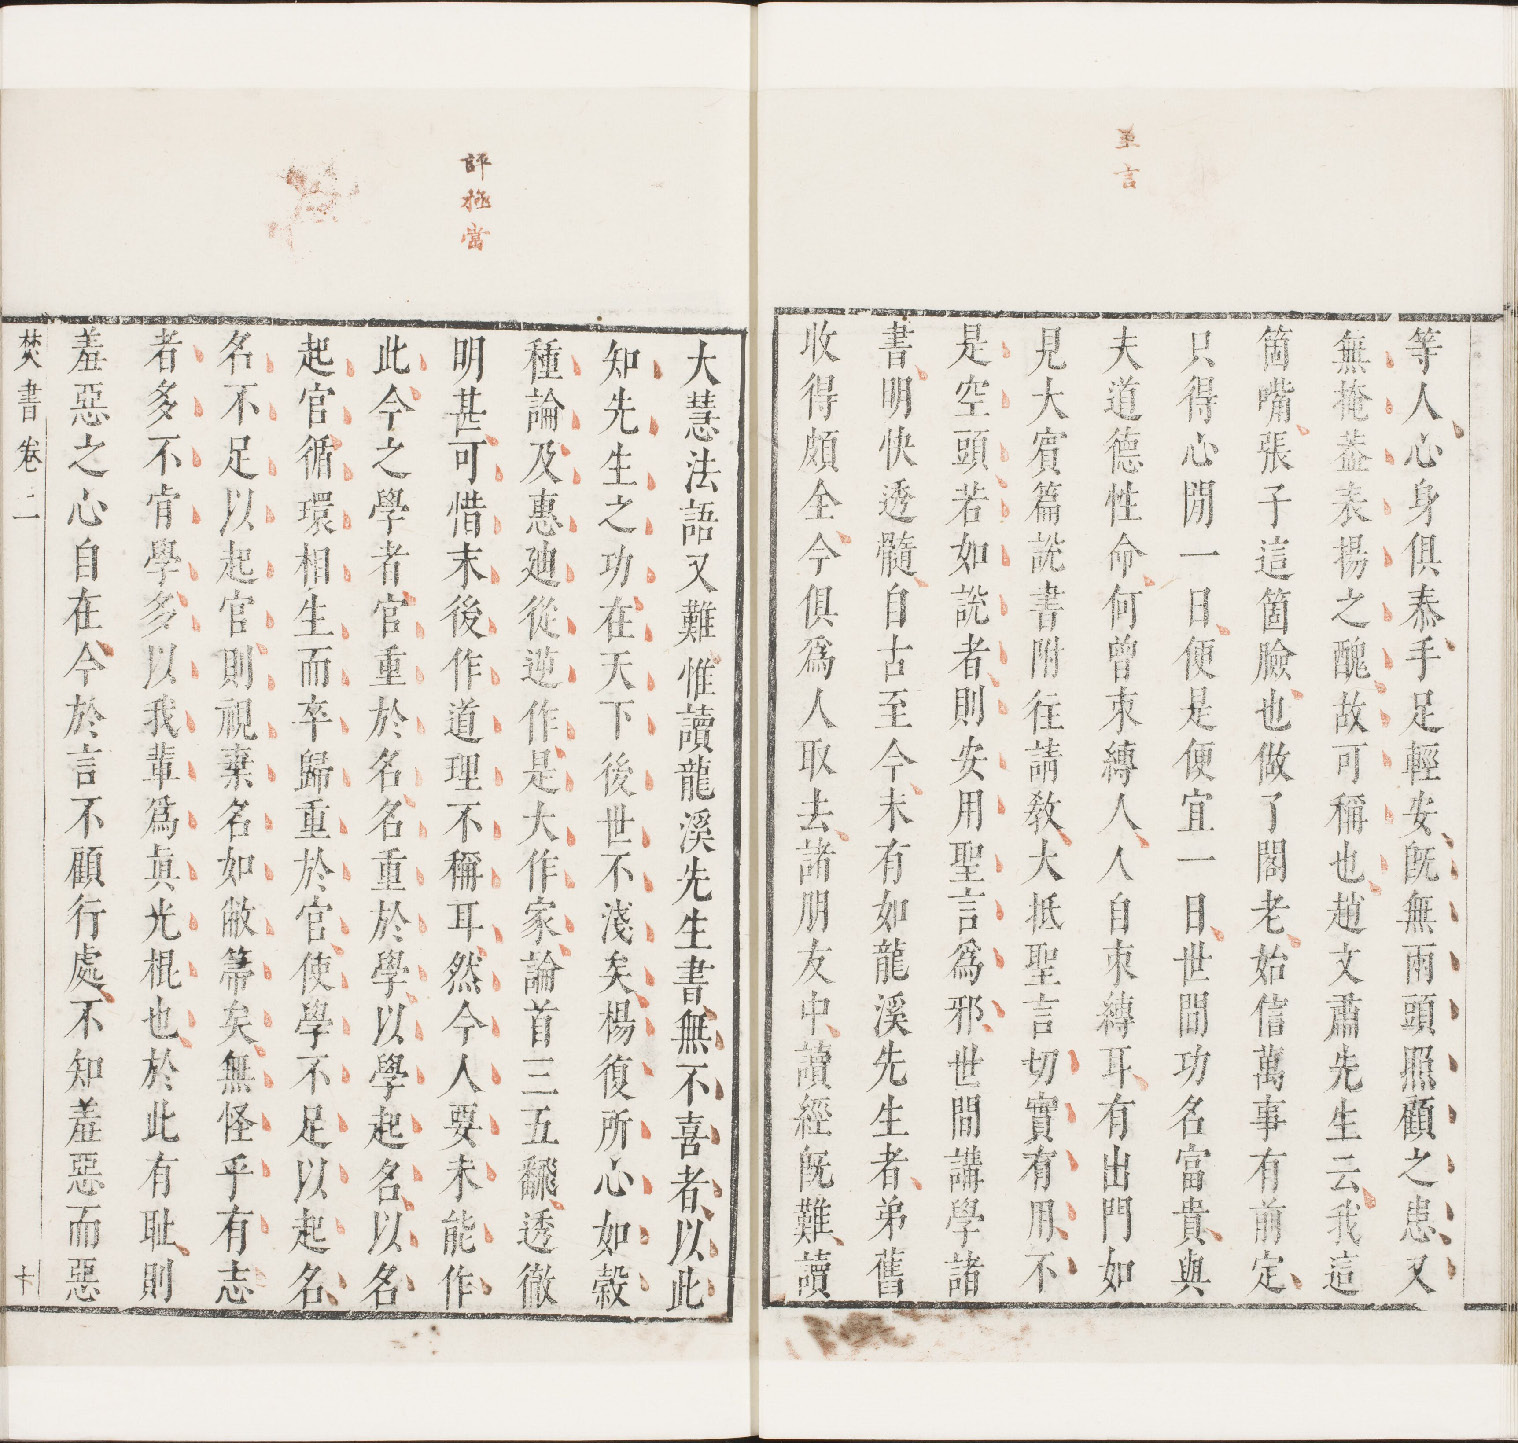 至言
等人心身俱泰手足輕安既無兩頭照顧之患又
無掩葢表揚之醜故可稱也趙文肅先生云我這
箇嘴張子這箇臉也做了閣老始信萬事有前定
只得心閒一日便是便宜一日世間功名富貴與
夫道德性命何曾束縛人人自束縛耳有出門如
見大賓篇說書附往請教大抵聖言切實有用不
是空頭若如說者則安用聖言爲邪世間講學諸
書明快透髓自古至今未有如龍溪先生者弟舊
收得頗全今俱爲人取去諸朋友中讀經既難讀
評極當
大慧法語又難惟讀龍溪先生書無不喜者以此
知先生之功在天下後世不淺矣楊復所心如穀
種論及惠廸從逆作是大作家論首三五翻透徹
明甚可惜末後作道理不稱耳然今人要未能作
此今之學者官重於名名重於學以學起名以名
起官循環相生而卒歸重於官使學不足以起名
名不足以起官則視棄名如敝箒矣無怪乎有志
者多不肯學多以我輩爲眞光棍也於此有耻則
羞惡之心自在今於言不顧行處不知羞惡而惡
焚書 卷二 十